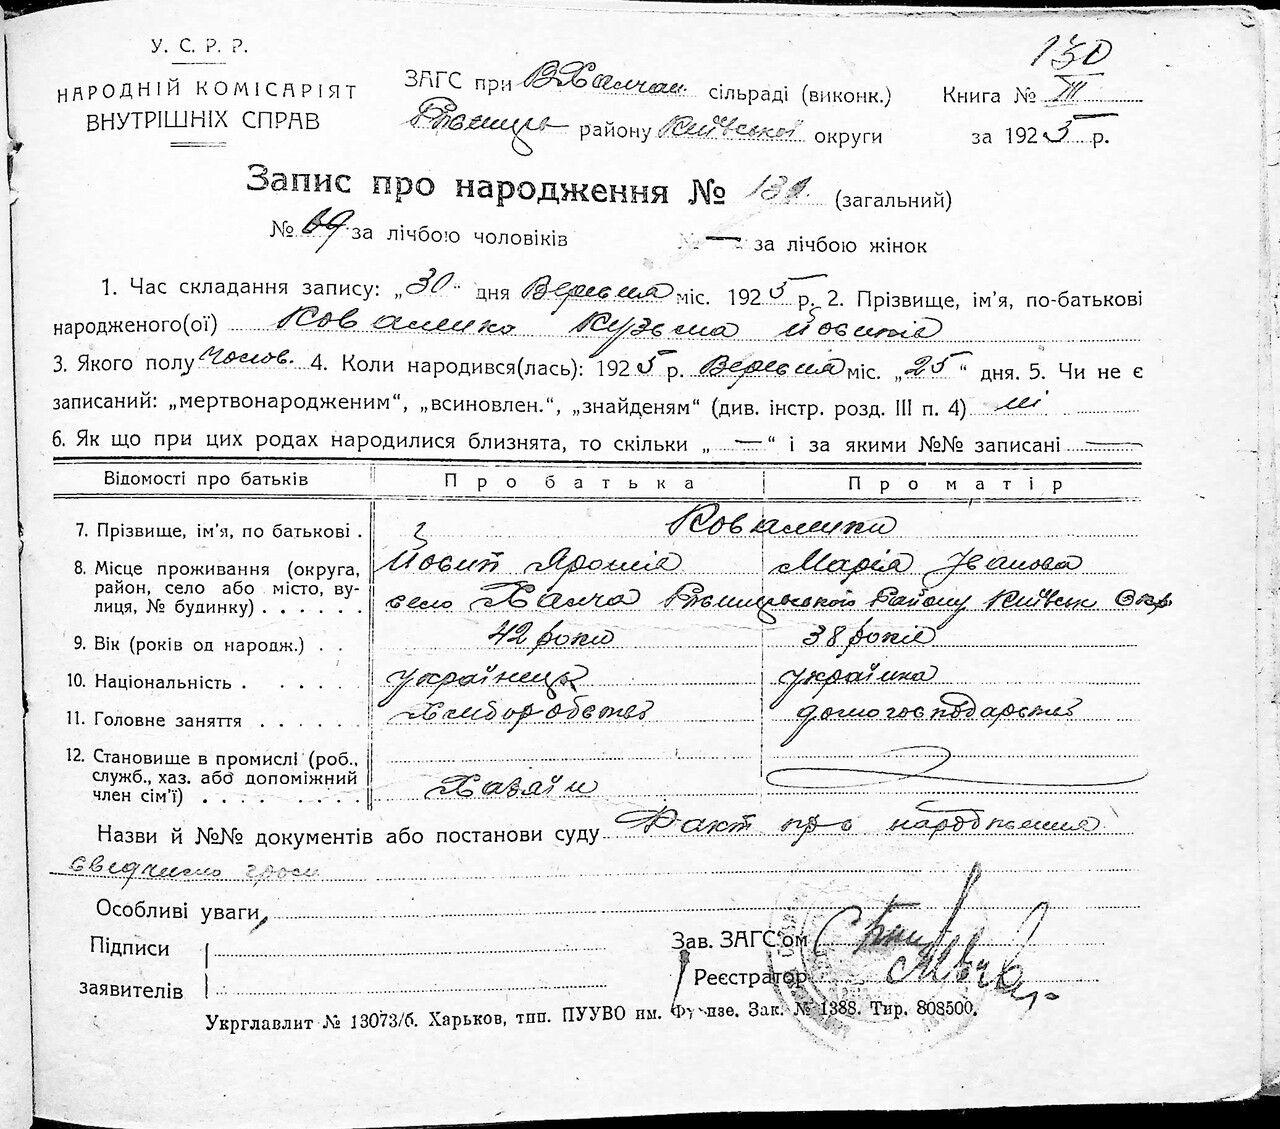 130
У. С. Р. Р.
НАРОДНІЙ КОМІСАРІЯТ
ВНУТРІШНІХ СПРАВ
ЗАГС при сільраді (виконк.)
району Київської округи
Книга № III
за 1925 р.
Запис про народження № 130 (загальний)
№ 69 за лічбою чоловіків № — за лічбою жінок
1. Час складання запису: „30" дня Вересня міс. 1925 р. 2. Прізвище, ім'я, по-батькові
народженого(ої) Коваленко Кузьма
3. Якого полу чолов. 4. Коли народився(лась): 1925 р. Вересня міс. „25" дня. 5. Чи не є
записаний: „мертвонародженим", „всиновлен.", „знайденям" (див. інстр. розд. III п. 4) ні
6. Як що при цих родах народилися близнята, то скільки „—" і за якими №№ записані —
Відомості про батьків Про батька Про матір
7. Прізвище, ім'я, по батькові . Коваленки
Марія Іванова
8. Місце проживання (округа,
район, село або місто, ву-
лиця, № будинку) . . . . . . село Халча Району Київськ Окр
9. Вік (років од народж.) . . 42 роки 38 років
10. Національність . . . . . . українець українка
11. Головне заняття . . . . . . Хліборобство домогосподарство
12. Становище в промислі (роб.,
служб., хаз. або допоміжний
член сім'ї) . . . . . . . . . Хазяїн
Назви й №№ документів або постанови суду Факт про народження
свідчили
Особливі уваги
Підписи
заявителів
Зав. ЗАГС'ом
Реєстратор
Укрглавліт № 13073/б. Харьков, тип. ПУУВО им. Фрунзе. Зак. № 1388. Тир. 808500.